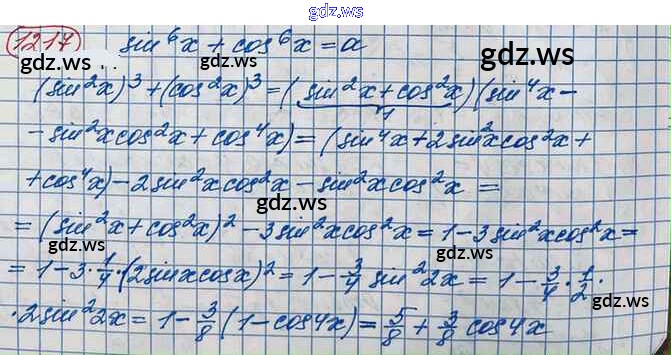 gdz.ws
1217 sin⁶x + cos⁶x = a
gdz.ws gdz.ws
(sin²x)³ + (cos²x)³ = (sin²x + cos²x)(sin⁴x -
1
- sin²x cos²x + cos⁴x) = (sin⁴x + 2sin²x cos²x +
gdz.ws
+ cos⁴x) - 2sin²x cos²x - sin²x cos²x =
gdz.ws
= (sin²x + cos²x)² - 3sin²x cos²x = 1 - 3sin²x cos²x =
= 1 - 3 · 1/4 · (2sinx cosx)² = 1 - 3/4 sin²2x = 1 - 3/4 · 1/2 ·
gdz.ws gdz.ws
· 2sin²2x = 1 - 3/8 (1 - cos4x) = 5/8 + 3/8 cos4x
gdz.ws